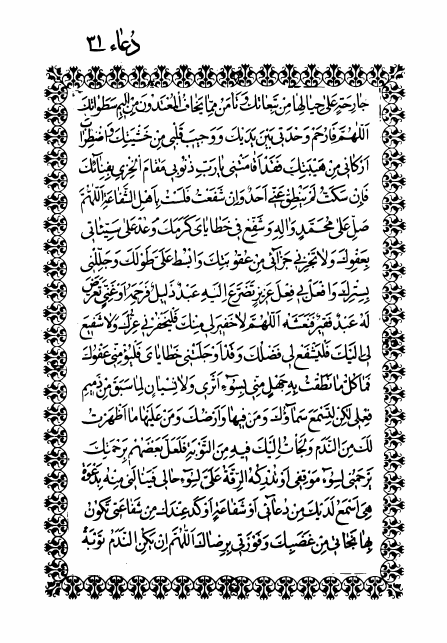 دُعاء ٣١
جارِحَةٍ عَلى حِيالِها مِن تَبِعاتِكَ وَتَأمَن مِمّا يَخافُ المُعتَدُونَ مِن اَليمِ سَطَواتِكَ
اَللّهُمَّ فَارحَم وَحدَتي بَينَ يَدَيكَ وَوَجيبَ قَلبي مِن خَشيَتِكَ وَاضطِرابَ
اَركاني مِن هَيبَتِكَ فَقَد اَقامَتني يا رَبِّ ذُنُوبي مَقامَ الخِزي بِفِنائِكَ
فَاِن سَكَتُّ لَم يَنطِق عَنّي اَحَدٌ وَاِن شَفَعتُ فَلَستُ بِاَهلِ الشَّفاعَةِ اَللّهُمَّ
صَلِّ عَلى مُحَمَّدٍ وَالِهِ وَشَفِّع في خَطايايَ كَرَمَكَ وَعُد عَلى سَيِّئاتي
بِعَفوِكَ وَلا تَجزِني جَزائي مِن عُقُوبَتِكَ وَابسُط عَلَيَّ طَولَكَ وَجَلِّلني
بِسِترِكَ وَافعَل بي فِعلَ عَزيزٍ تَضَرَّعَ اِلَيهِ عَبدٌ ذَليلٌ فَرَحِمَهُ اَو غَنِيٍّ تَعَرَّضَ
لَهُ عَبدٌ فَقيرٌ فَنَعَشَهُ اَللّهُمَّ لا خَفيرَ لي مِنكَ فَليَخفُرني عِزُّكَ وَلا شَفيعَ
لي اِلَيكَ فَليَشفَع لي فَضلُكَ وَقَد اَوجَلَتني خَطايايَ فَليُؤمِنّي عَفوُكَ
فَما كُلُّ ما نَطَقتُ بِهِ عَن جَهلٍ مِنّي بِسُوءِ اَثَري وَلا نِسيانٍ لِما سَبَقَ مِن ذَميمِ
فِعلي لكِن لِتَسمَعَ سَماؤُكَ وَمَن فيها وَاَرضُكَ وَمَن عَلَيها ما اَظهَرتُ
لَكَ مِنَ النَّدَمِ وَلَجَأتُ اِلَيكَ فيهِ مِنَ التَّوبَةِ فَلَعَلَّ بَعضَهُم بِرَحمَتِكَ
يَرحَمُني لِسُوءِ مَوقِفي اَو تُدرِكُهُ الرِّقَّةُ عَلَيَّ لِسُوءِ حالي فَيَنالَني مِنهُ بِدَعوَةٍ
هِيَ اَسمَعُ لَدَيكَ مِن دُعائي اَو شَفاعَةٍ اَوكَدُ عِندَكَ مِن شَفاعَتي تَكُونُ
بِها نَجاتي مِن غَضَبِكَ وَفَوزَتي بِرِضاكَ اَللّهُمَّ اِن يَكُنِ النَّدَمُ تَوبَةً